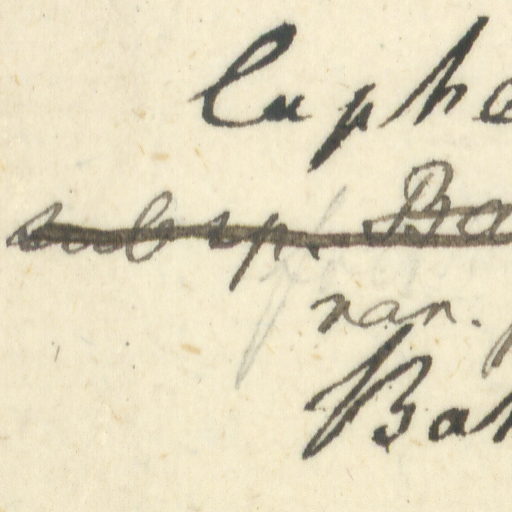 Cuphe
subsp. Ba
var. p
Bah